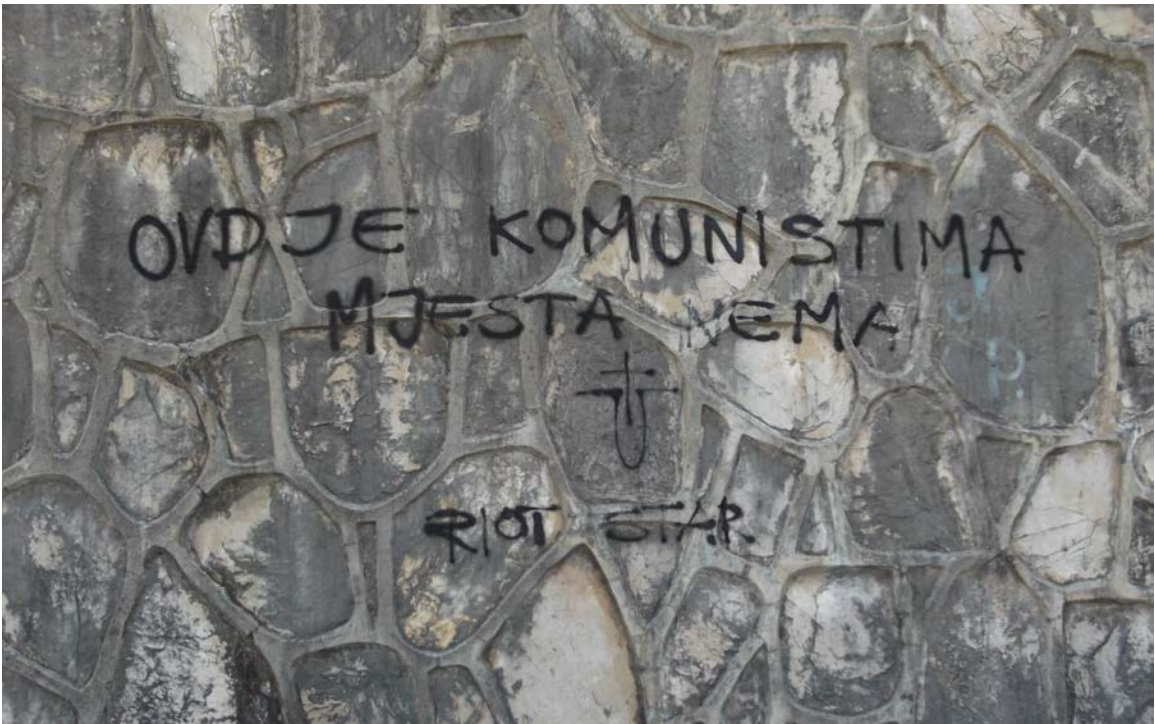 OVDJE KOMUNISTIMA
MJESTA NEMA
RIOT STAR